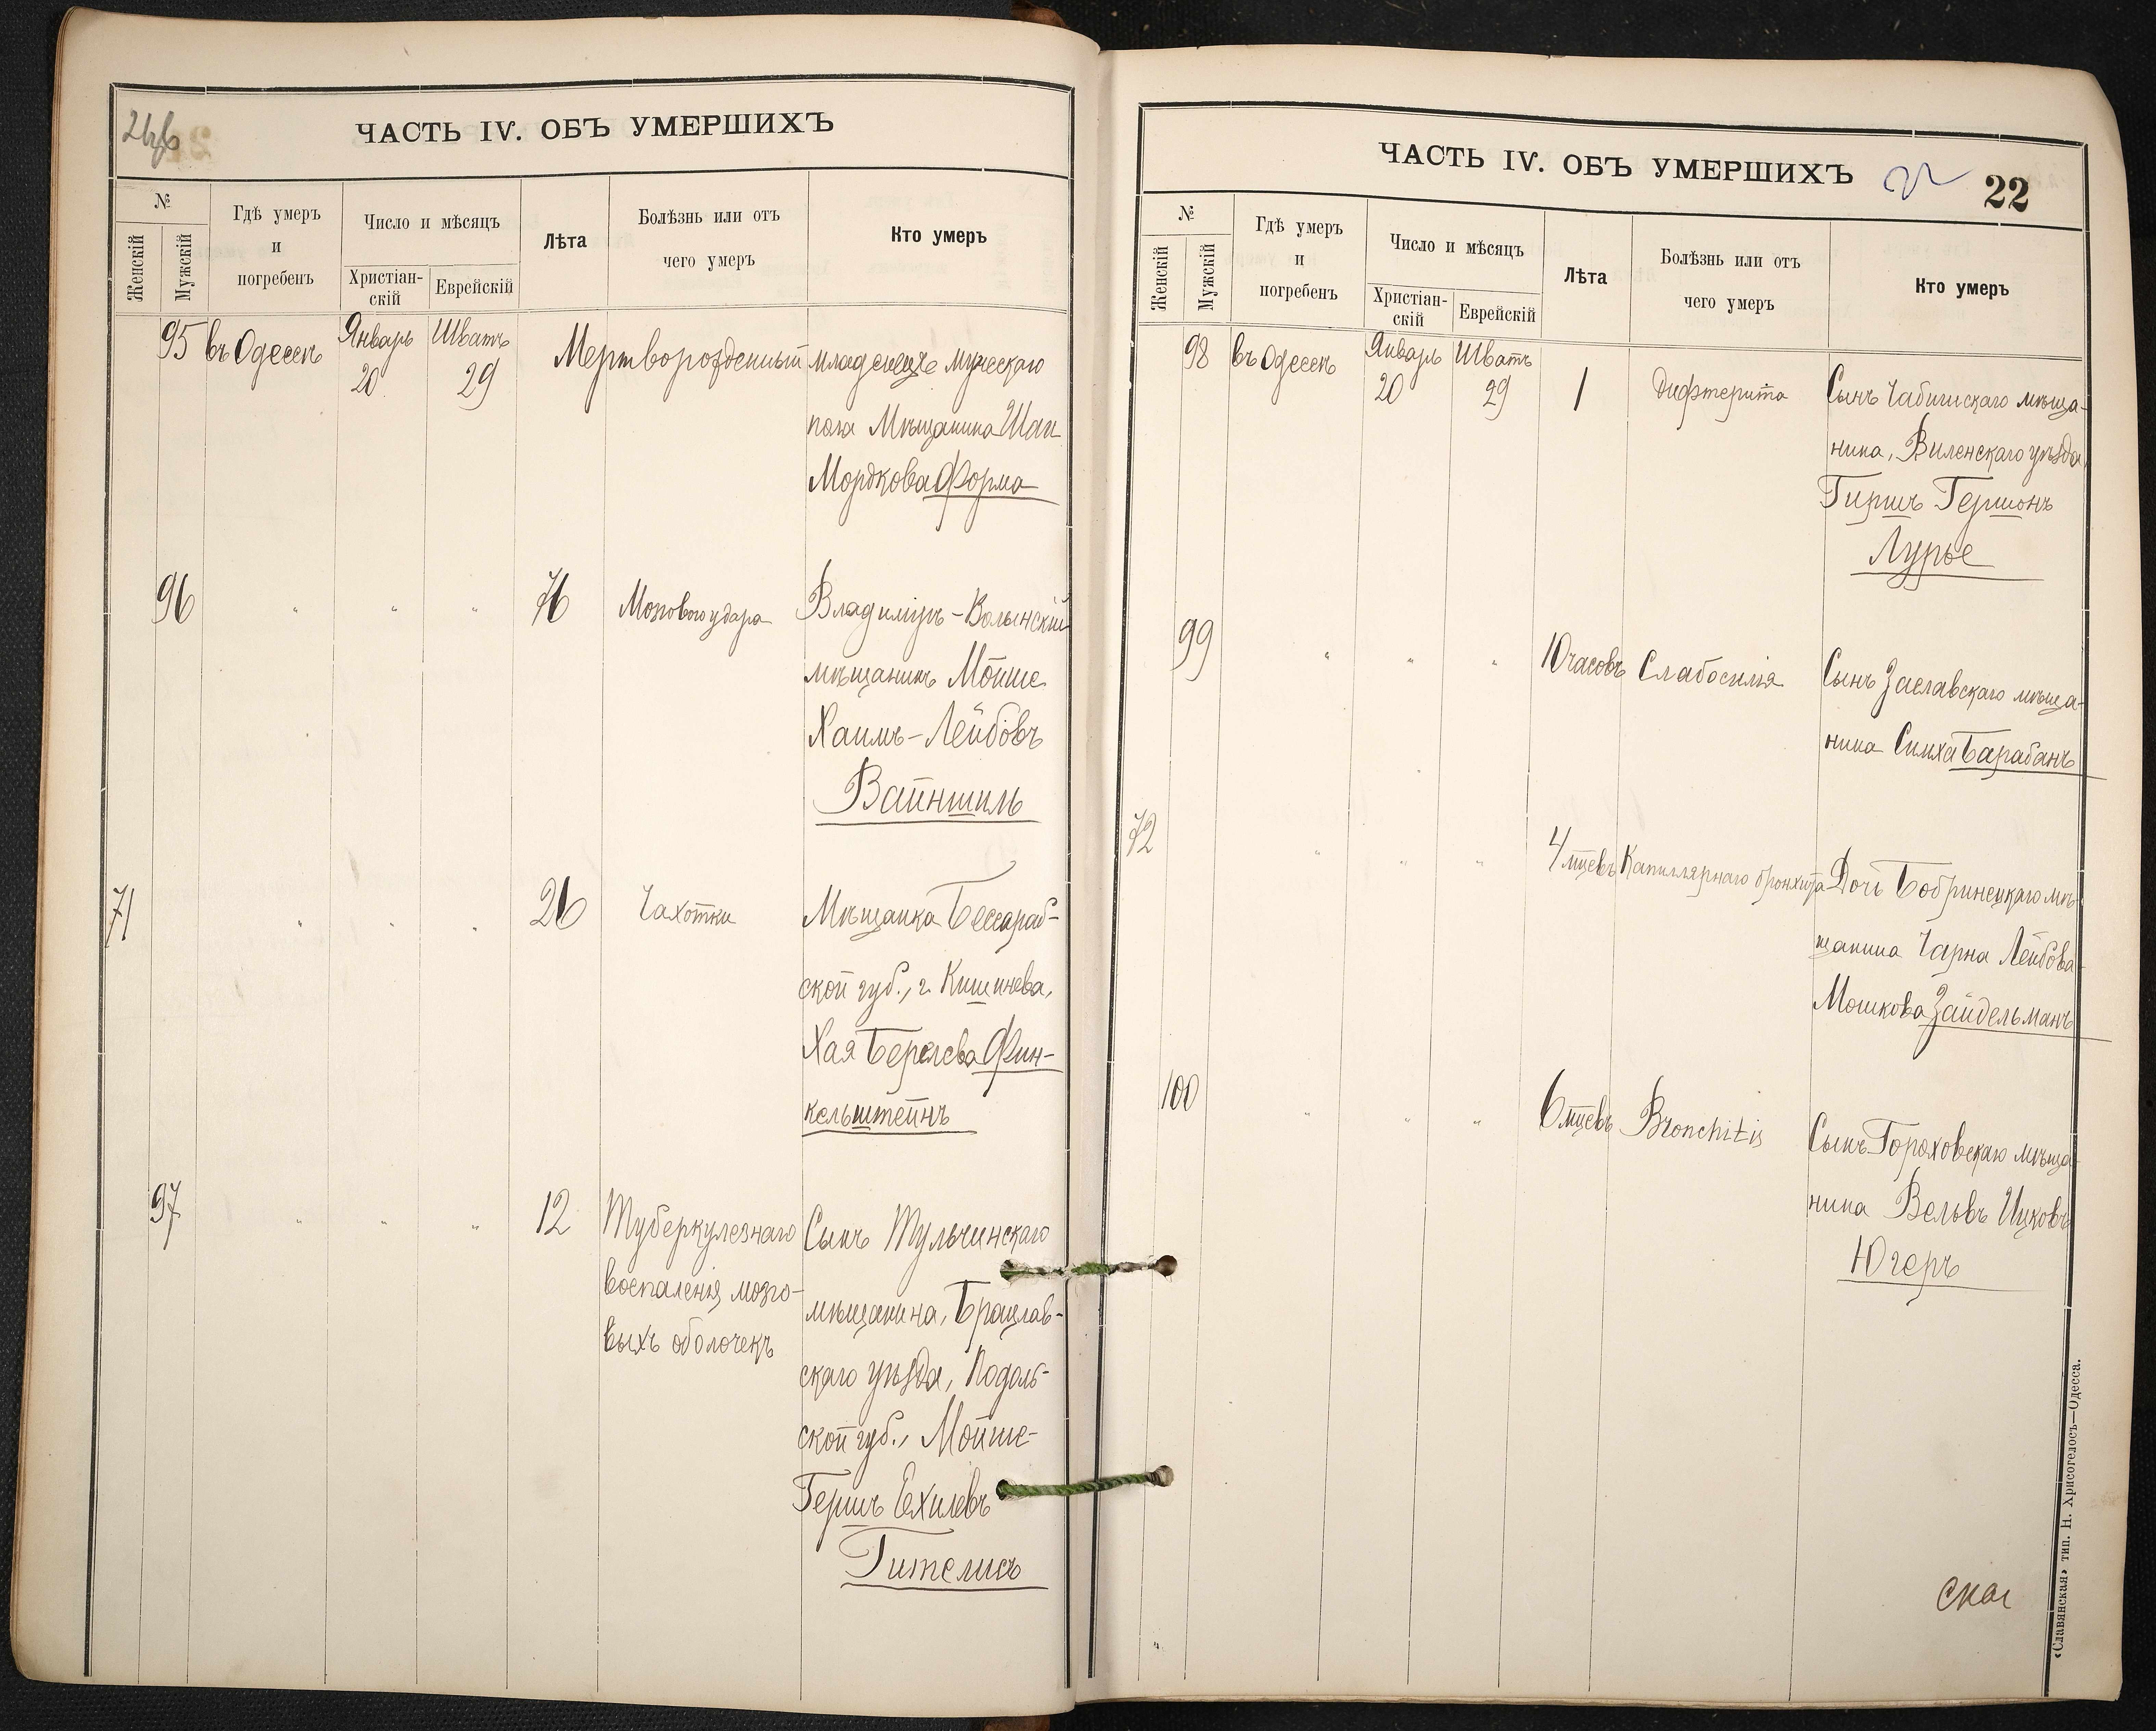 ЧАСТЬ IV. ОБЪ УМЕРШИХЪ
№
Женскій
Мужскій
Гдѣ умеръ
и
погребенъ
Число и мѣсяцъ
Христіан-
скій
Еврейскій
Лѣта
Болѣзнь или отъ
чего умеръ
Кто умеръ
95 въ Одессѣ Январь Шватъ Мертворожденный младенецъ мужескаго
20 29
пола Мѣщанина Шаи
Мордкова Форма
96 " " " 76 Мозгового удара Владиміръ-Волынскій
мѣщанинъ Мойше
Хаимъ-Лейбовъ
Вайншиль
71 " " " 26 Чахотки Мѣщанка Бессараб-
ской губ., г. Кишинева,
Хая Берлева Фин-
кельштейнъ
97 " " " 12 Туберкулезнаго Сынъ Тульчинскаго
воспаленія мозго-
выхъ оболочекъ
мѣщанина, Брацлав-
скаго уѣзда, Подоль-
ской губ., Мойше-
Гершъ Ехилевъ
Гителисъ
ЧАСТЬ IV. ОБЪ УМЕРШИХЪ
22
№
Женскій
Мужскій
Гдѣ умеръ
и
погребенъ
Число и мѣсяцъ
Христіан-
скій
Еврейскій
Лѣта
Болѣзнь или отъ
чего умеръ
Кто умеръ
98 въ Одессѣ Январь Шватъ
20 29 1 Дифтерита Сынъ мѣща-
нина, Виленскаго уѣзда
Гиршъ Гершонъ
Лурье
99 " " " 10 часовъ Слабосилія Сынъ Заславскаго мѣща-
нина Симха Барабанъ
72 " " " 4 мцевъ Капиллярнаго бронхита Дочь Бобринецкаго мѣ-
щанина Чарна Лейбова-
Мошкова Зайдельманъ
100 " " " 6 мцевъ Bronchitis Сынъ Гороховскаго мѣща-
нина Вельвъ Ицковъ
Югеръ
«Славянская» тип. Н. Хрисогелосъ—Одесса.